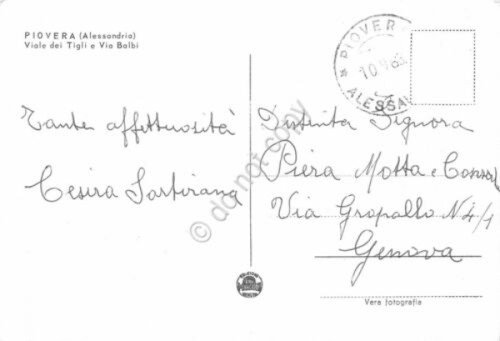 PIOVERA (Alessandria)
Viale dei Tigli e Via Balbi
PIOVERA
10.9.63
ALESSA
Tante affettuosità
Cesira Sartirana
Distinta Signora
Piera Motta e Consort
Via Gropallo N 4/1
Genova
Vera fotografia
do not copy